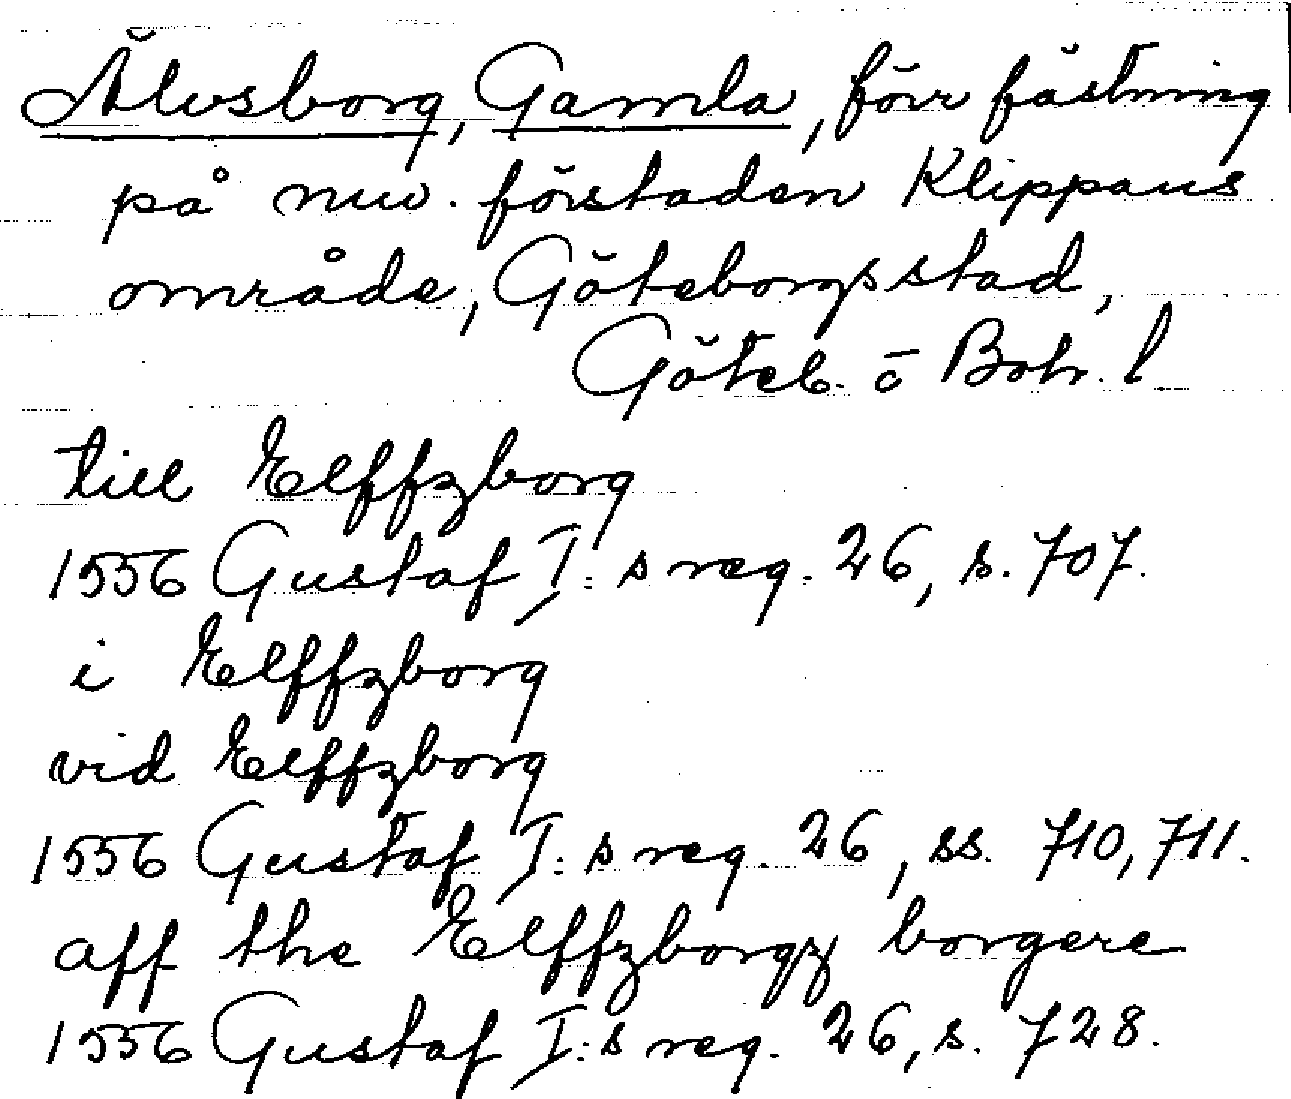 Älvsborg, Gamla, förr fästning
på nuv. förstaden Klippans
område, Göteborgs stad,
Göteb. o Boh. l
till Elffzborg
1556 Gustaf I:s reg. 26, s. 707.
i Elffzborg
vid Elffzborg
1556 Gustaf I:s reg. 26, ss. 710, 711.
aff the Elffzborgz borgere
1556 Gustaf I:s reg. 26, s. 728.